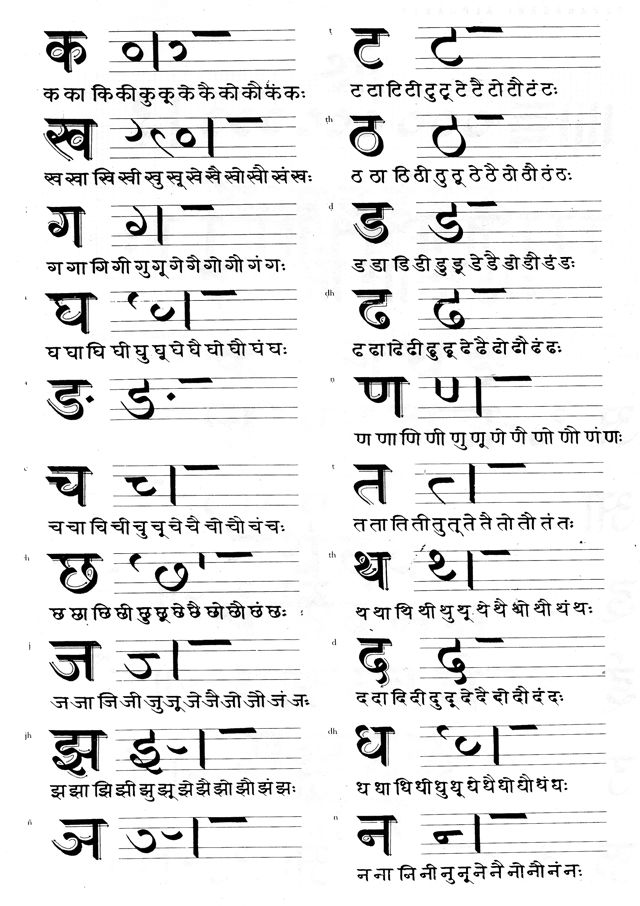 क
क का कि की कु कू के कै को कौ कं कः
ख
ख खा खि खी खु खू खे खै खो खौ खं खः
ग
ग गा गि गी गु गू गे गै गो गौ गं गः
घ
घ घा घि घी घु घू घे घै घो घौ घं घः
ङ
च
च चा चि ची चु चू चे चै चो चौ चं चः
छ
छ छा छि छी छु छू छे छै छो छौ छं छः
j ज
ज जा जि जी जु जू जे जै जो जौ जं जः
jh झ
झ झा झि झी झु झू झे झै झो झौ झं झः
ñ ञ
ट
ट टा टि टी टु टू टे टै टो टौ टं टः
th ठ
ठ ठा ठि ठी ठु ठू ठे ठै ठो ठौ ठं ठः
ḍ ड
ड डा डि डी डु डू डे डै डो डौ डं डः
dh ढ
ढ ढा ढि ढी ढु ढू ढे ढै ढो ढौ ढं ढः
ण
ण णा णि णी णु णू णे णै णो णौ णं णः
t त
त ता ति ती तु तू ते तै तो तौ तं तः
th थ
थ था थि थी थु थू थे थै थो थौ थं थः
d द
द दा दि दी दु दू दे दै दो दौ दं दः
dh ध
ध धा धि धी धु धू धे धै धो धौ धं धः
n न
न ना नि नी नु नू ने नै नो नौ नं नः